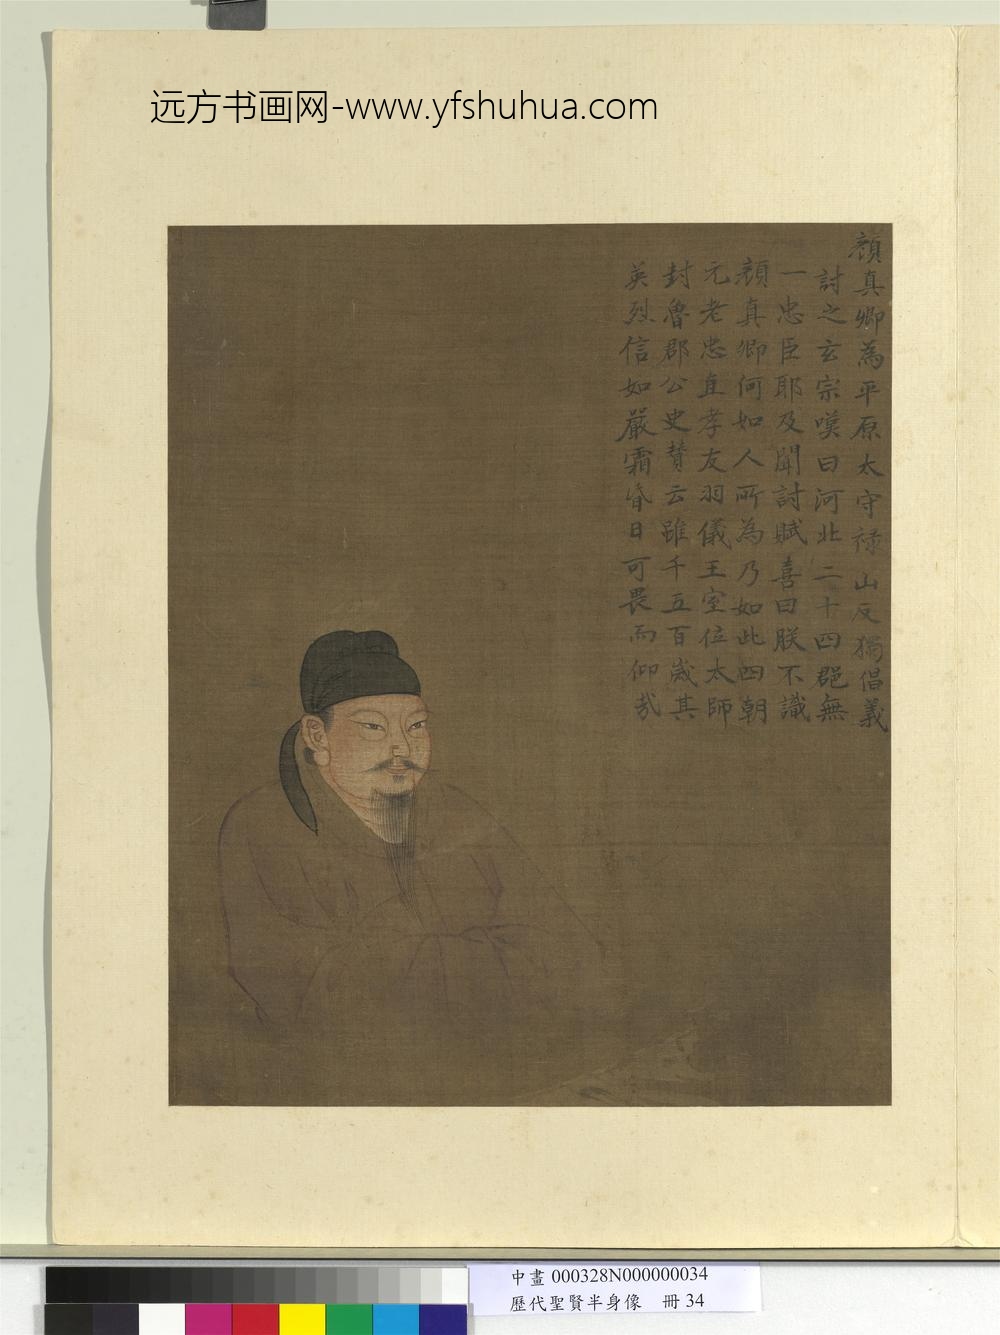 远方书画网-www.yfshuhua.com
顏真卿為平原太守禄山反獨倡義
討之玄宗嘆曰河北二十四郡無
一忠臣耶及聞討賊喜曰朕不識
顏真卿何如人所為乃如此四朝
元老忠直孝友羽儀王室位太師
封魯郡公史贊云雖千五百歲其
英烈信如嚴霜昏日可畏而仰哉
中畫 000328N000000034
歷代聖賢半身像 冊 34